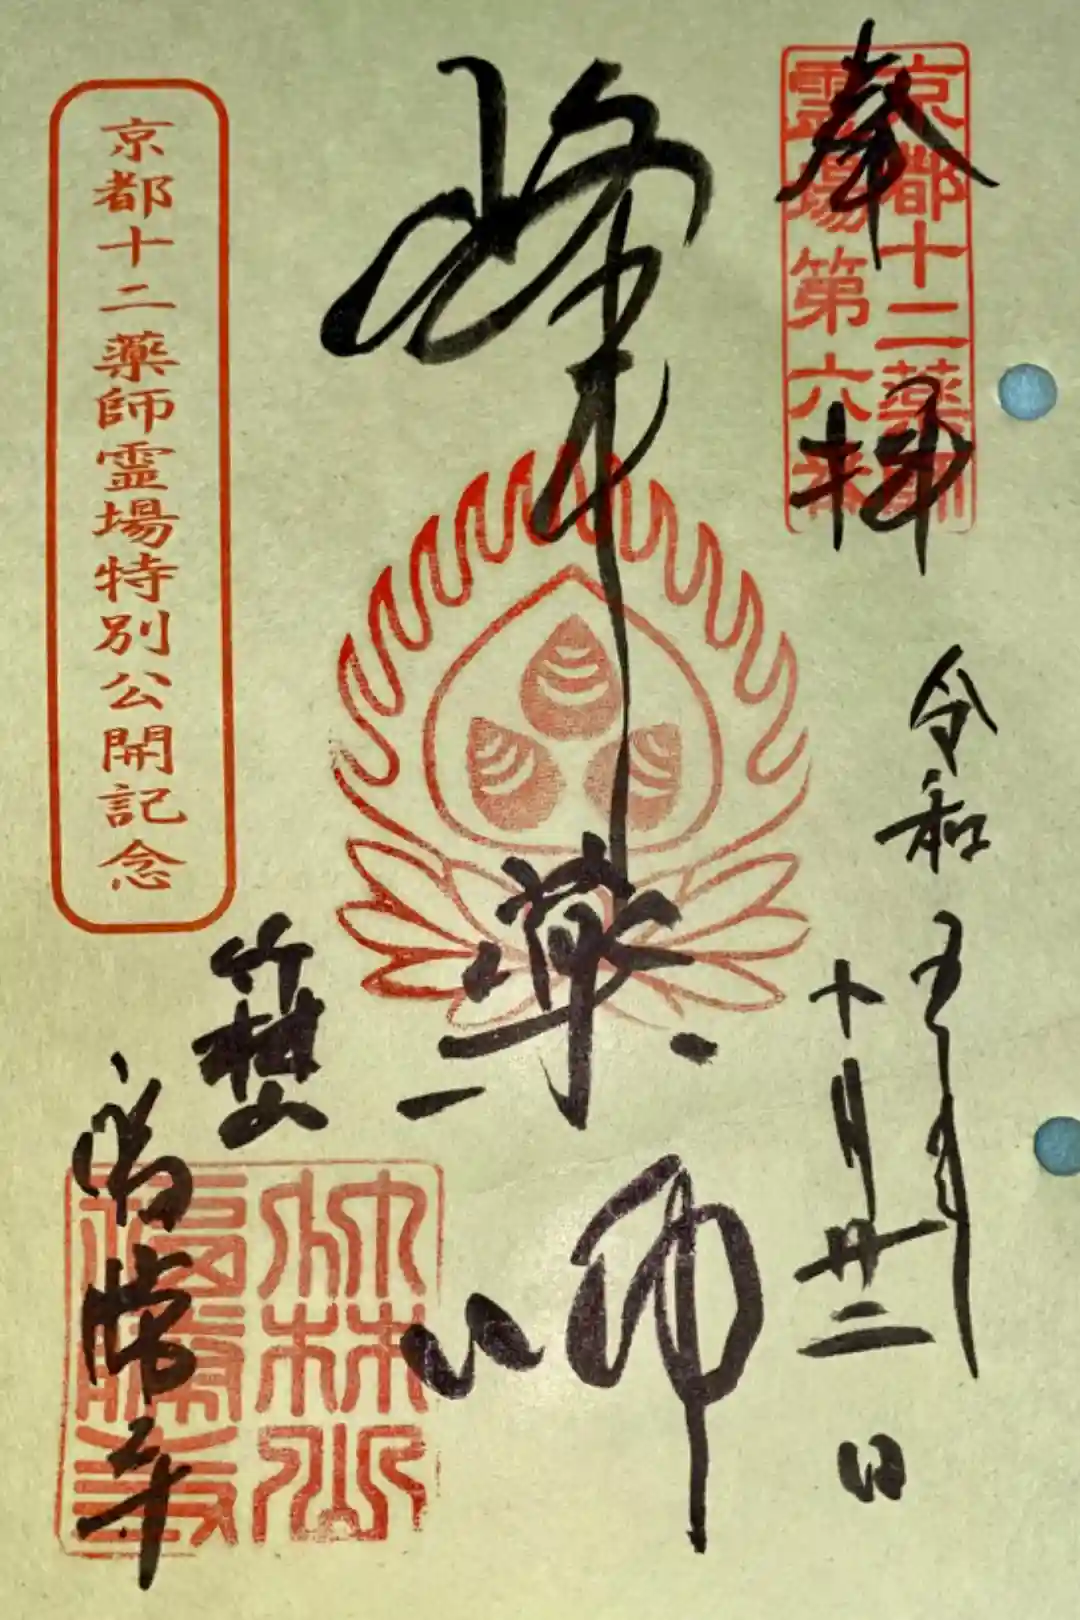 奉拝
京都十二薬師
霊場第六番
令和五年
十月廿二日
峰薬師
竹林山
福勝寺
竹林山
福勝寺
京都十二薬師霊場特別公開記念